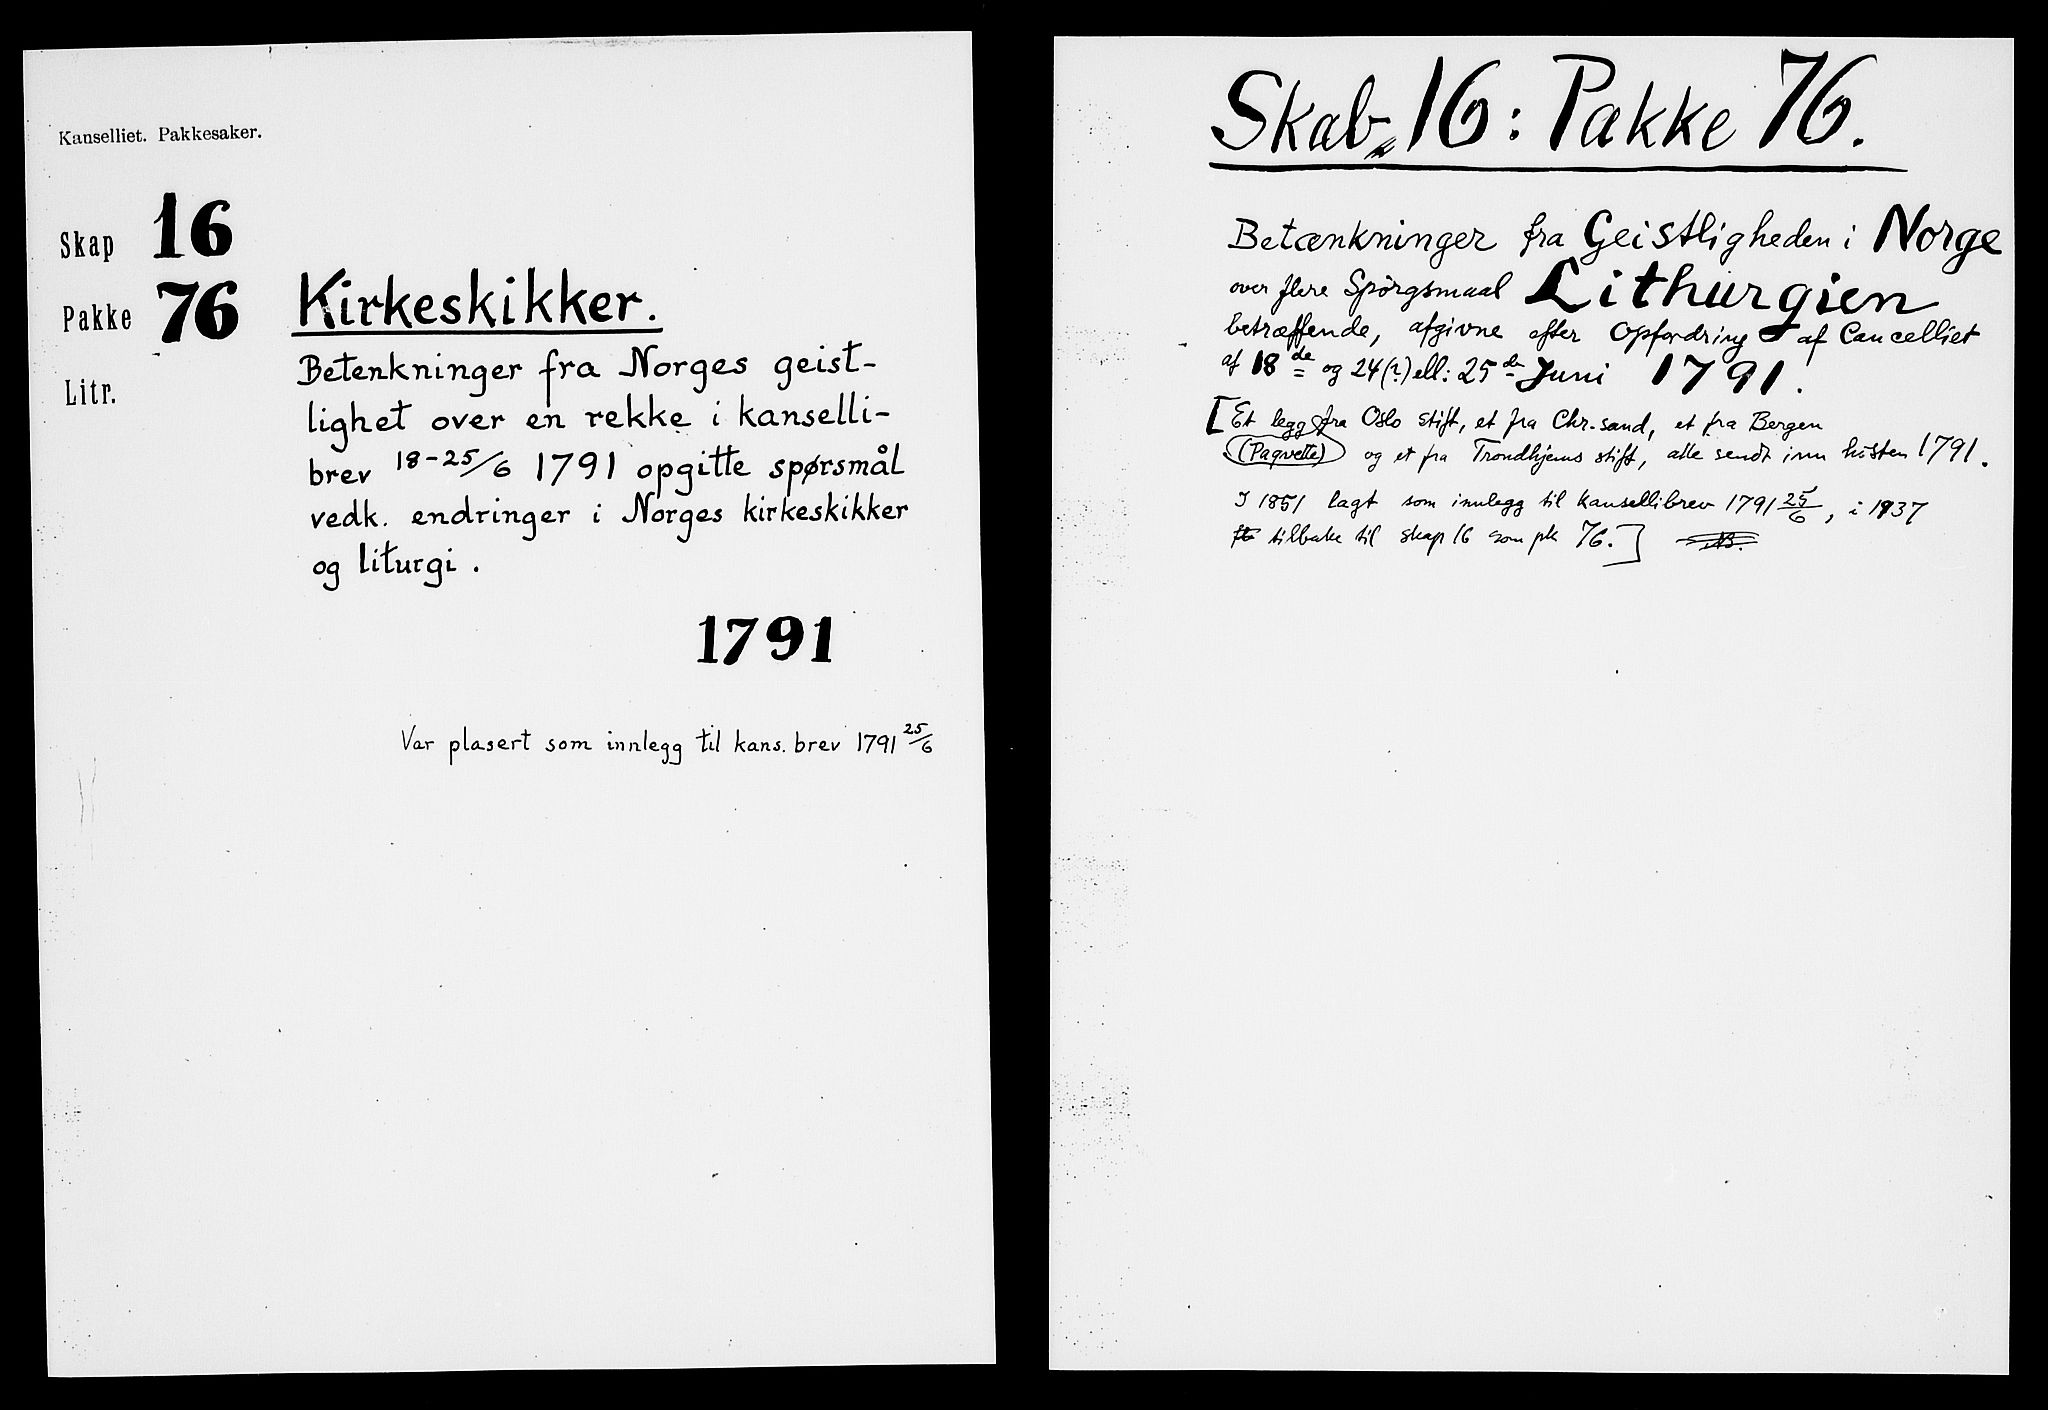 Kanselliet. Pakkesaker.
Skap 16
Pakke 76
Litr.
Kirkeskikker.
Betenkninger fra Norges geist-
lighet over en rekke i kanselli-
brev 18-25/6 1791 opgitte spørsmål
vedk. endringer i Norges kirkeskikker
og liturgi.
1791
Var plasert som innlegg til kans. brev 1791 25/6
Skab 16: Pakke 76.
Betænkninger fra Geistligheden i Norge
over flere Spörgsmaal Lithurgien
betræffende, afgivne efter Opfordring af Cancelliet
af 18de og 24(?) ell: 25de Juni 1791.
[Et legg fra Oslo stift, et fra Chr.sand, et fra Bergen
(Paqvette) og et fra Trondhjems stift, alle sendt inn høsten 1791.
I 1851 lagt som innlegg til kansellibrev 1791 25/6, i 1937
tilbake til skap 16 som pk 76.]